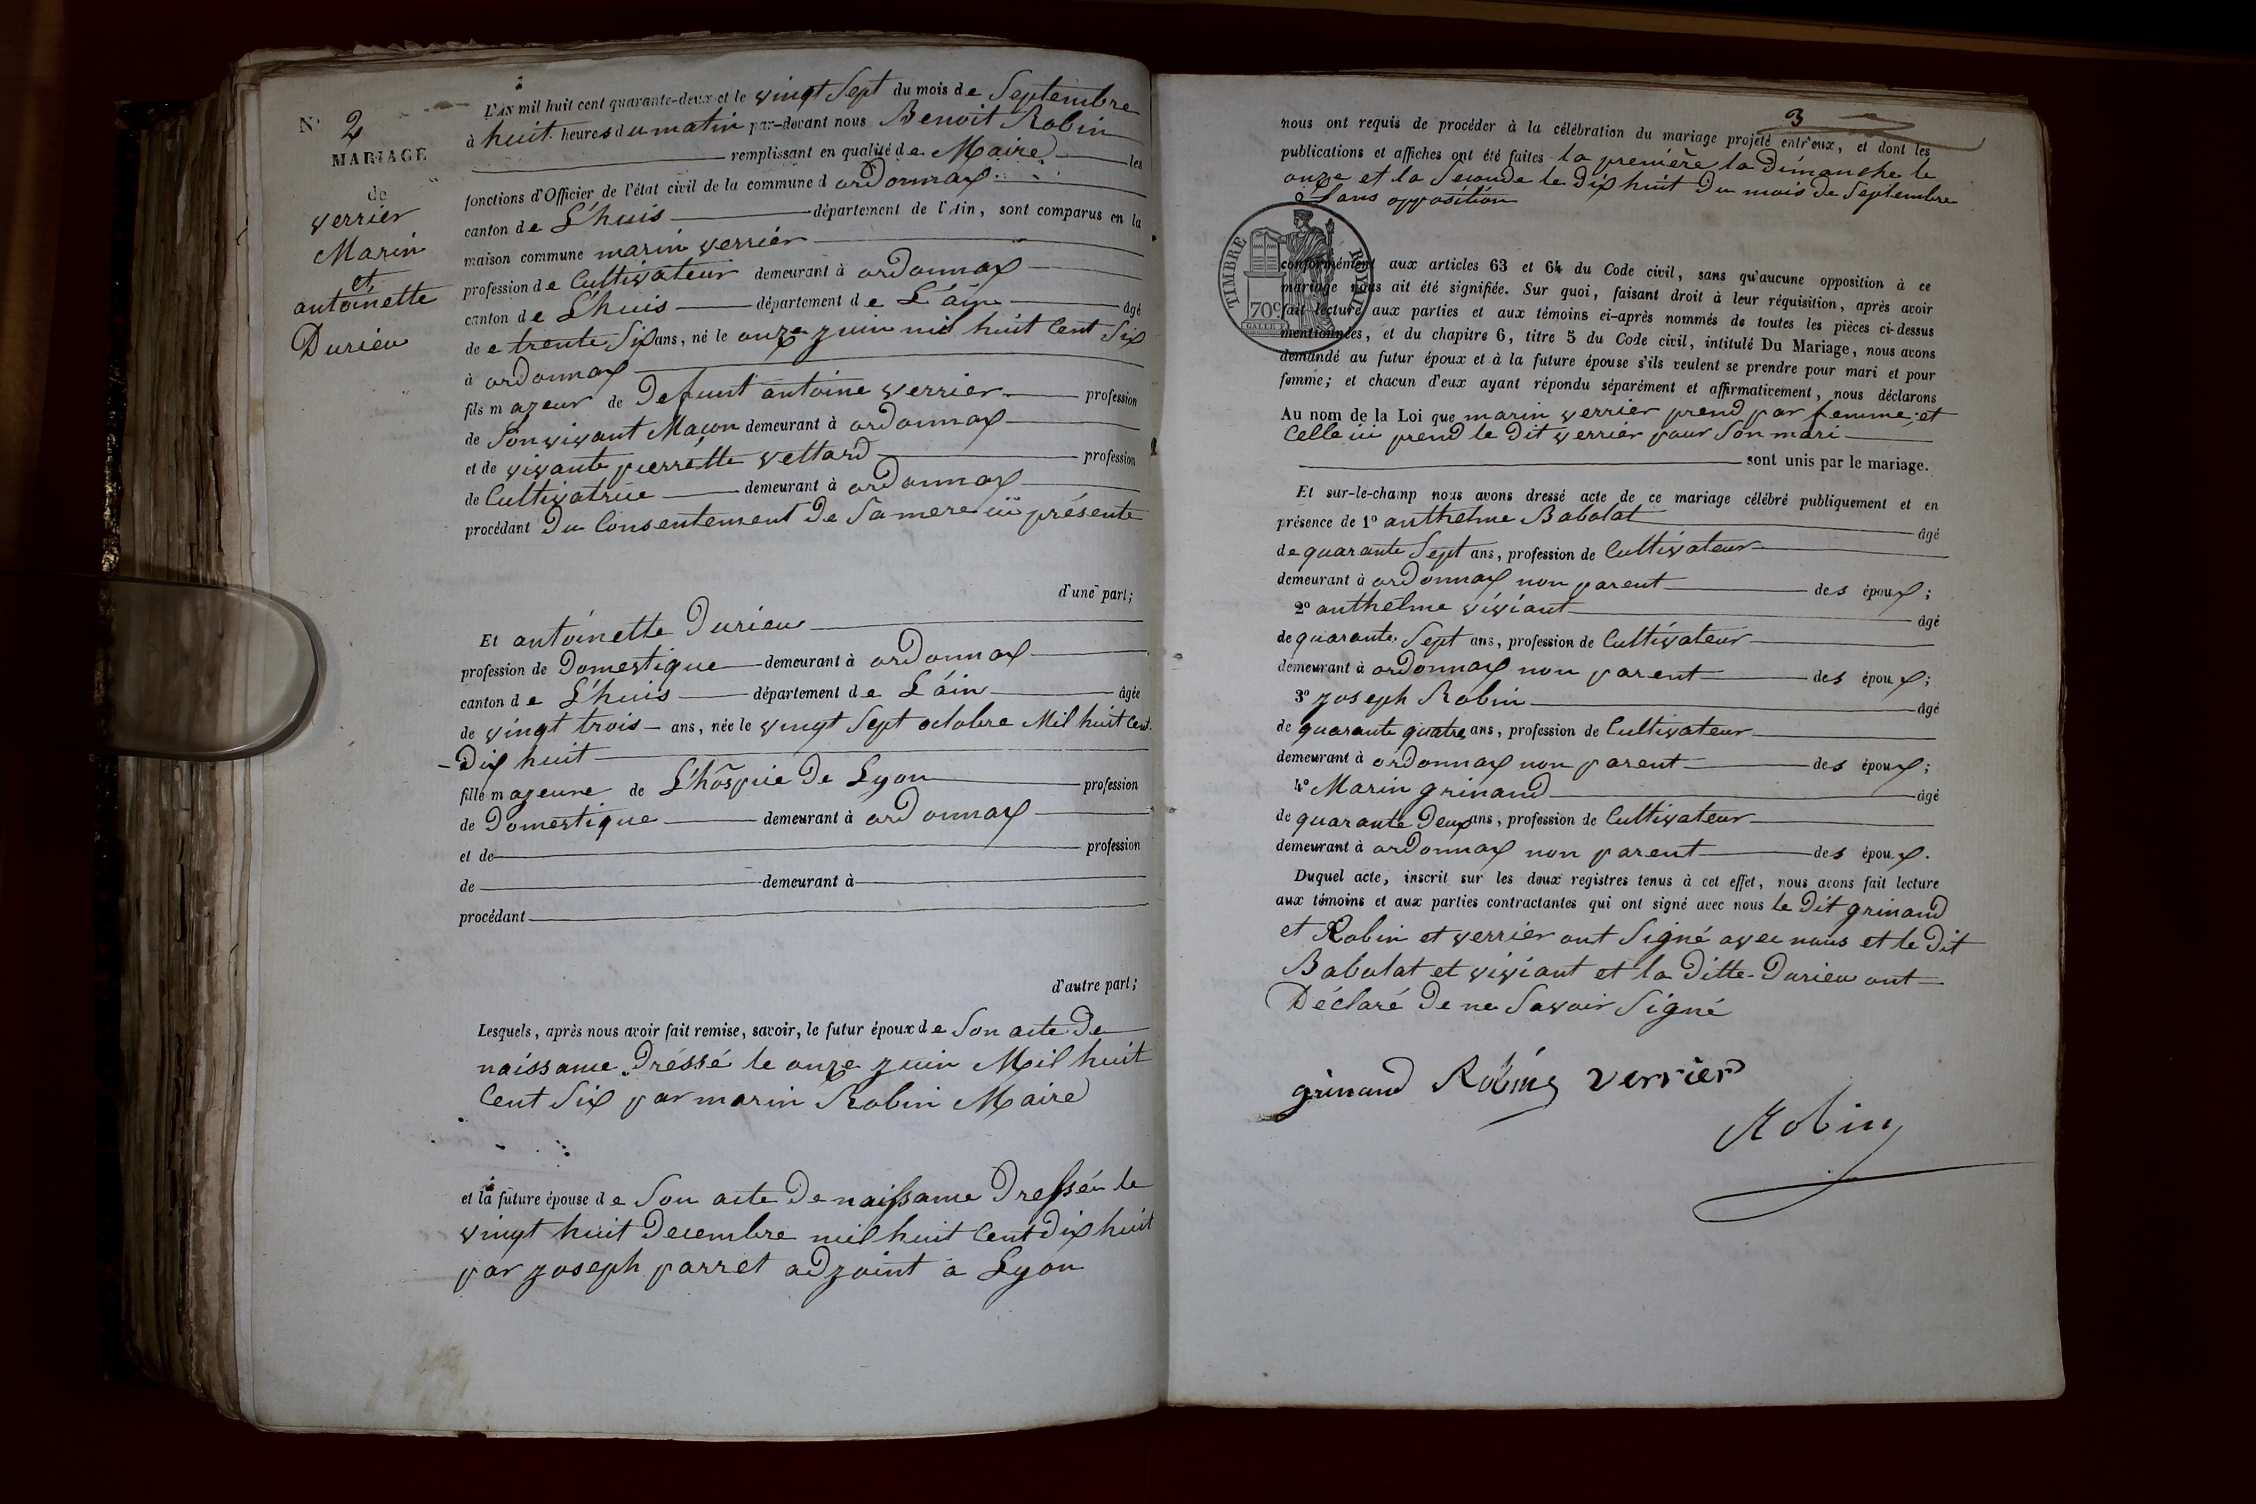 N° 2
MARIAGE
de
verrier
Marin
et
antoinette
Durieu
L'AN mil huit cent quarante-deux et le vingt Sept du mois de Septembre
à huit heures du matin par-devant nous Benoit Robin
remplissant en qualité de Maire les
fonctions d'Officier de l'état civil de la commune d ordonnax
canton de L'huis département de l'Ain, sont comparus en la
maison commune marin verrier
profession de Cultivateur demeurant à ordonnax
canton de L'huis département de L'ain âgé
de e trente Six ans, né le onze juin mil huit Cent Six
à ordonnax
fils majeur de Defunt antoine verrier profession
de Son vivant Maçon demeurant à ordonnax
et de vivante pierrette vettard profession
de Cultivatrice demeurant à ordonnax
procédant Du Consentement De Sa mere ici présente
d'une part;
Et antoinette Durieu
profession de Domestique demeurant à ordonnax
canton de L'huis département de L'ain âgée
de vingt trois ans, née le vingt Sept octobre Mil huit Cent
Dix huit
fille majeure de L'hospice De Lyon profession
de Domestique demeurant à ordonnax
et de profession
de demeurant à
procédant
d'autre part;
Lesquels, après nous avoir fait remise, savoir, le futur époux de Son acte De
naissance Dréssé le onze juin Mil huit
Cent Six par marin Robin Maire
et la future épouse de Son acte De naissance Dressée le
vingt huit Decembre mil huit Cent Dix huit
par joseph parret adjoint a Lyon
3
nous ont requis de procéder à la célébration du mariage projeté entr'eux, et dont les
publications et affiches ont été faites la première la Dimanche le
onze et la Seconde le Dix huit Du mois de Septembre
Sans opposition
TIMBRE ROYAL
70c
conformément aux articles 63 et 64 du Code civil, sans qu'aucune opposition à ce
mariage nous ait été signifiée. Sur quoi, faisant droit à leur réquisition, après avoir
fait lecture aux parties et aux témoins ci-après nommés de toutes les pièces ci-dessus
mentionnées, et du chapitre 6, titre 5 du Code civil, intitulé Du Mariage, nous avons
demandé au futur époux et à la future épouse s'ils veulent se prendre pour mari et pour
femme; et chacun d'eux ayant répondu séparément et affirmativement, nous déclarons
Au nom de la Loi que marin verrier prend par femme, et
Celle ici prend le Dit verrier pour Son mari
sont unis par le mariage.
Et sur-le-champ nous avons dressé acte de ce mariage célébré publiquement et en
présence de 1° anthelme Babolat âgé
de quarante Sept ans, profession de Cultivateur
demeurant à ordonnax non parent des époux;
2° anthelme viviant âgé
de quarante Sept ans, profession de Cultivateur
demeurant à ordonnax non parent des époux;
3° joseph Robin âgé
de quarante quatre ans, profession de Cultivateur
demeurant à ordonnax non parent des époux;
4° Marin grinand âgé
de quarante Deux ans, profession de Cultivateur
demeurant à ordonnax non parent des époux.
Duquel acte, inscrit sur les deux registres tenus à cet effet, nous avons fait lecture
aux témoins et aux parties contractantes qui ont signé avec nous le Dit grinand
et Robin et verrier ont Signé avec nous et le Dit
Babolat et viviant et la Ditte Durieu ont
Déclaré De ne Savoir Signé
grinand Robin verrier
Robin